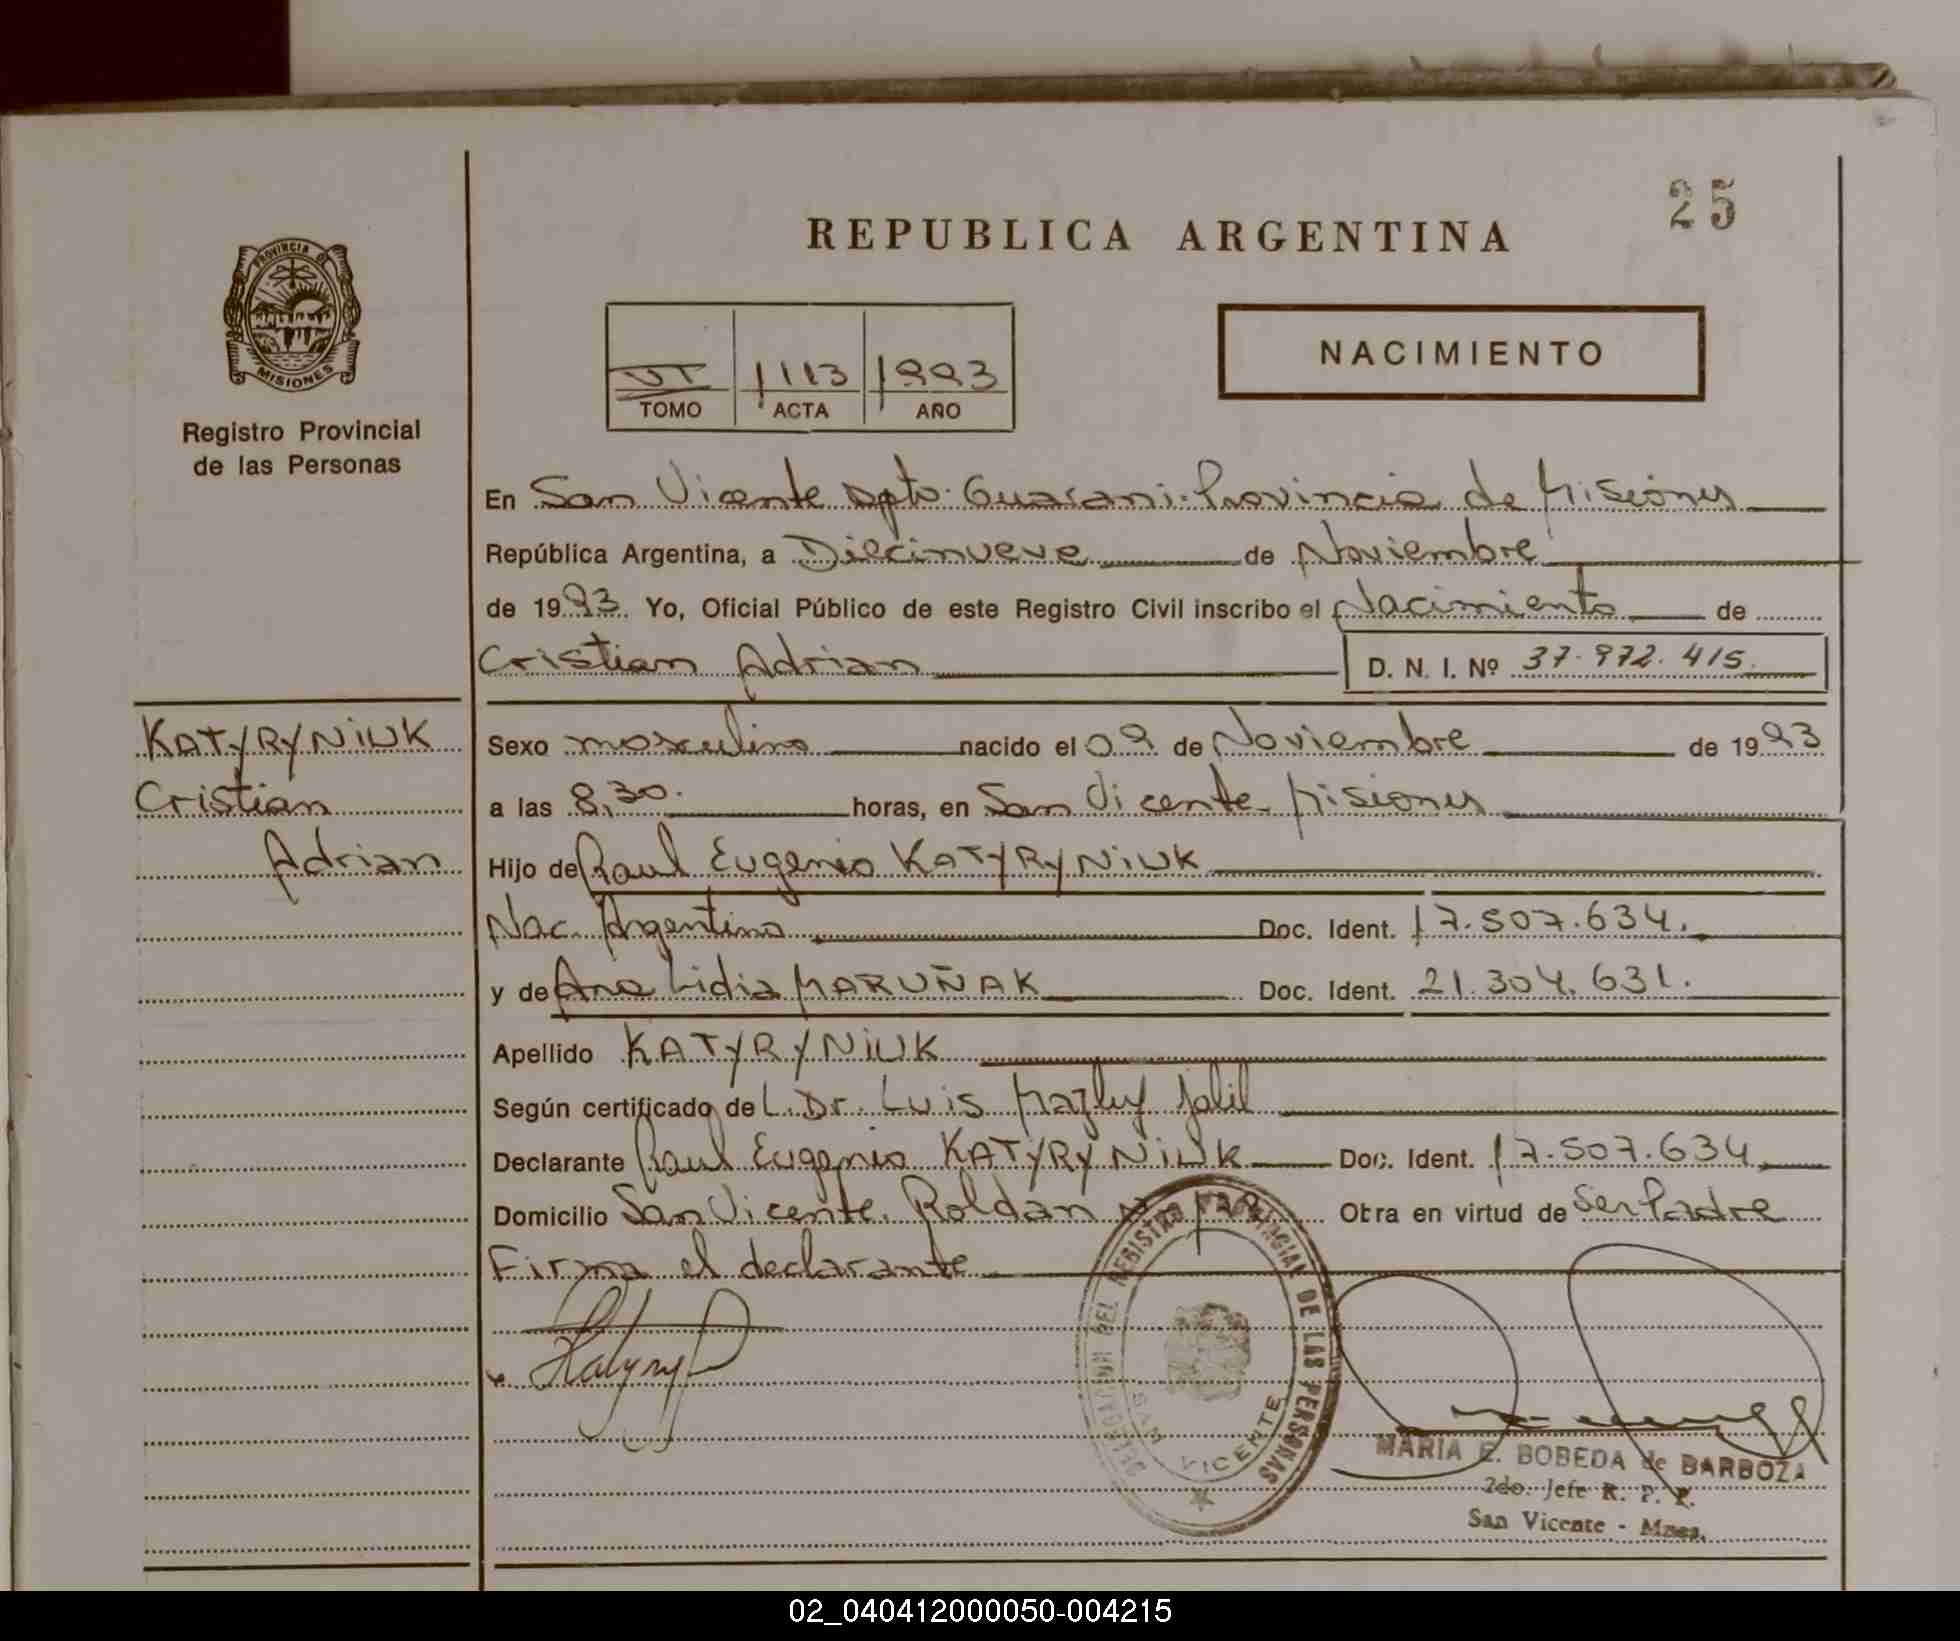 25
REPUBLICA ARGENTINA
PROVINCIA DE
MISIONES
Registro Provincial
de las Personas
VI 1113 1993
TOMO ACTA AÑO
NACIMIENTO
En San Vicente Dpto. Guarani. Provincia de Misiones
República Argentina, a Diecinueve de Noviembre
de 1993. Yo, Oficial Público de este Registro Civil inscribo el Nacimiento de
Cristian Adrian D. N. I. Nº 37.972.415.
KATYRYNIUK
Cristian
Adrian
Sexo masculino nacido el 09 de Noviembre de 1993
a las 8,30. horas, en San Vicente. Misiones
Hijo de Raul Eugenio KATYRYNIUK
Nac. Argentino Doc. Ident. 17.507.634.
y de Ana Lidia MARUÑAK Doc. Ident. 21.304.631.
Apellido KATYRYNIUK
Según certificado de L. Dr. Luis Mazluf Jalil
Declarante Raul Eugenio KATYRYNIUK Doc. Ident. 17.507.634
Domicilio San Vicente. Roldan Otra en virtud de ser Padre
Firma el declarante
DELEGACION DEL REGISTRO PROVINCIAL DE LAS PERSONAS
SAN VICENTE
MARIA E. BOBEDA de BARBOZA
2do. Jefe R. P. P.
San Vicente - Mnes.
02_040412000050-004215